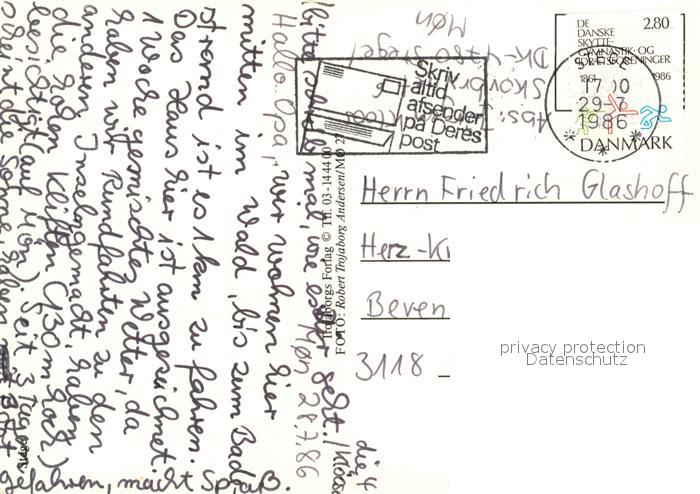 Møn 28.7.86
Hallo Opa, wir wohnen hier
mitten im Wald, bis zum Bade-
strand ist es 1 km zu fahren.
Das Haus hier ist ausgezeichnet
1 Woche gemischtes Wetter, da
haben wir Rundfahrten zu den
anderen Inseln gemacht, haben
die hohen Klippen (130 m hoch)
besichtigt (auf Møn). Seit 3 Tagen
scheint die Sonne, haben Boot
gefahren, macht Spaß.
geht.
Abs:
DK-4780 Stege
Møn
Skriv
altid
afsender
på Deres
post
DE
DANSKE
SKYTTE-
GYMNASTIK- OG
IDRÆTSFORENINGER
1861 1986
2.80
DANMARK
STEGE
17 00
29-7
1986
Trojaborgs Forlag © Tlf. 03-14 44 00
FOTO: Robert Trojaborg Andersen/MØ 2
Herrn Friedrich Glashoff
Herz-K
Beven
3118
privacy protection
Datenschutz